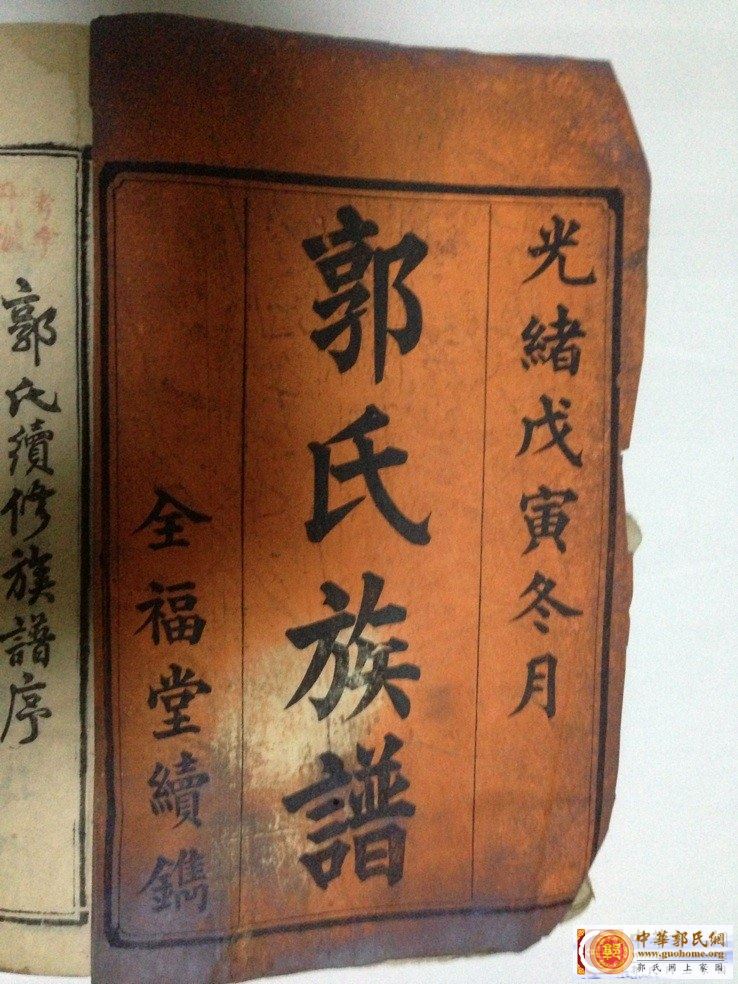 光緒戊寅冬月
郭氏族譜
全福堂續鐫
郭氏續修族譜序
中華郭氏網
www.guohome.org
郭氏网上家园